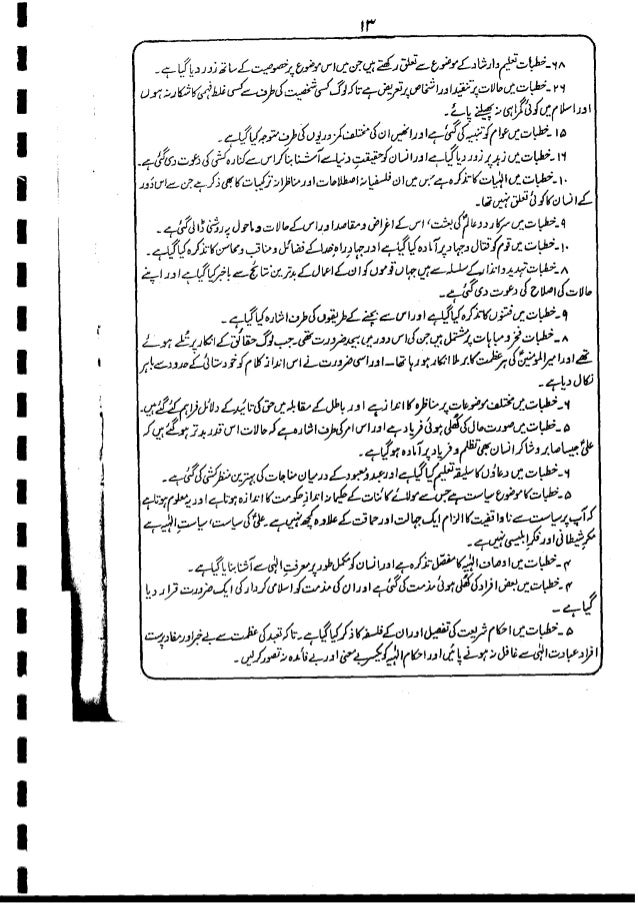 ۱۳
۶۸۔ خطبات تعلیم و ارشاد کے موضوع سے تعلق رکھتے ہیں جن میں اس موضوع پر خصوصیت کے ساتھ زور دیا گیا ہے۔
۲۶۔ خطبات میں حالات پر تنقید اور اشخاص پر تعریض ہے تاکہ لوگ کسی شخصیت کی طرف سے کسی غلط فہمی کا شکار نہ ہوں
اور اسلام میں کوئی گمراہی نہ پھیلنے پائے۔
۱۵۔ خطبات میں عوام کو تنبیہ کی گئی ہے اور انھیں ان کی مختلف کمزوریوں کی طرف متوجہ کیا گیا ہے۔
۱۶۔ خطبات میں زہد پر زور دیا گیا ہے اور انسان کو حقیقتِ دنیا سے آشنا بنا کر اس سے کنارہ کشی کی دعوت دی گئی ہے۔
۱۰۔ خطبات میں الٰہیات کا تذکرہ ہے جس میں ان فلسفیانہ اصطلاحات اور مناظرانہ ترکیبات کا بھی ذکر ہے جن سے اس دور
کے انسان کا کوئی تعلق نہیں تھا۔
۹۔ خطبات میں سرکار دو عالمؐ کی بعثت، اس کے اغراض و مقاصد اور اس کے حالات و ماحول پر روشنی ڈالی گئی ہے۔
۱۰۔ خطبات میں قوم کو قتال و جہاد پر آمادہ کیا گیا ہے اور جہادِ راہِ خدا کے فضائل و مناقب و محاسن کا تذکرہ کیا گیا ہے۔
۸۔ خطبات تہدید و انذار کے سلسلہ سے ہیں جہاں قوموں کو ان کے اعمال کے بدترین نتائج سے باخبر کیا گیا ہے اور اپنے
حالات کی اصلاح کی دعوت دی گئی ہے۔
۹۔ خطبات میں فتنوں کا تذکرہ کیا گیا ہے اور اس سے بچنے کے طریقوں کی طرف اشارہ کیا گیا ہے۔
۸۔ خطبات فخر و مباہات پر مشتمل ہیں جن کی اس دور میں بیحد ضرورت تھی۔ جب لوگ حقائق کے انکار پر تُلے ہوئے
تھے اور امیرالمومنینؑ کی ہر عظمت کا برملا انکار ہو رہا تھا۔ اور اسی ضرورت نے اس انداز کلام کو خودستائی کے حدود سے باہر
نکال دیا ہے۔
۶۔ خطبات میں مختلف موضوعات پر مناظرہ کا انداز ہے اور باطل کے مقابلہ میں حق کی تائید کے دلائل فراہم کئے گئے ہیں۔
۵۔ خطبات میں صورت حال کی کھلی ہوئی فریاد ہے اور اس امر کی طرف اشارہ ہے کہ حالات اس قدر بدتر ہو گئے ہیں کہ
علیؑ جیسا صابر و شاکر انسان بھی تظلم و فریاد پر آمادہ ہو گیا ہے۔
۶۔ خطبات میں دعاؤں کا سلیقہ تعلیم کیا گیا ہے اور عبد و معبود کے درمیان مناجات کی بہترین منظر کشی کی گئی ہے۔
۵۔ خطبات کا موضوع سیاست ہے جس سے مولائے کائنات کے حکیمانہ اندازِ حکومت کا اندازہ ہوتا ہے اور یہ معلوم ہوتا ہے
کہ آپ پر سیاست سے ناواقفیت کا الزام ایک جہالت اور حماقت کے علاوہ کچھ نہیں ہے۔ علیؑ کی سیاست، سیاستِ الٰہیہ ہے
مکرِ شیطانی اور فکرِ ابلیسی نہیں ہے۔
۴۔ خطبات میں اوصافِ الٰہیہ کا مفصل تذکرہ ہے اور انسان کو مکمل طور پر معرفتِ الٰہی سے آشنا بنایا گیا ہے۔
۴۔ خطبات میں بعض افراد کی کھلی ہوئی مذمت کی گئی ہے اور ان کی مذمت کو اسلامی کردار کی ایک ضرورت قرار دیا
گیا ہے۔
۵۔ خطبات میں احکام شریعت کی تفصیل اور ان کے فلسفہ کا ذکر کیا گیا ہے۔ تاکہ تعبد کی عظمت سے بے خبر اور مفاد پرست
افراد عبادت الٰہی سے غافل نہ ہونے پائیں اور احکام الٰہیہ کو یکسر بے معنیٰ اور بے فائدہ نہ تصور کر لیں۔